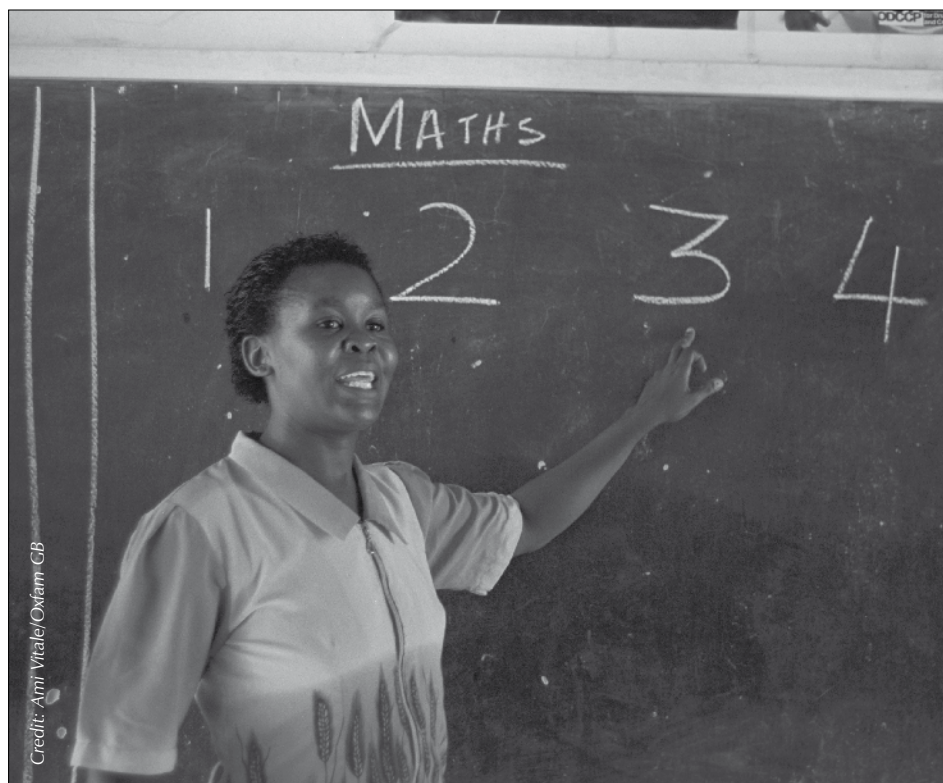 ODCCP
MATHS
1 2 3 4
Credit: Ami Vitale/Oxfam GB